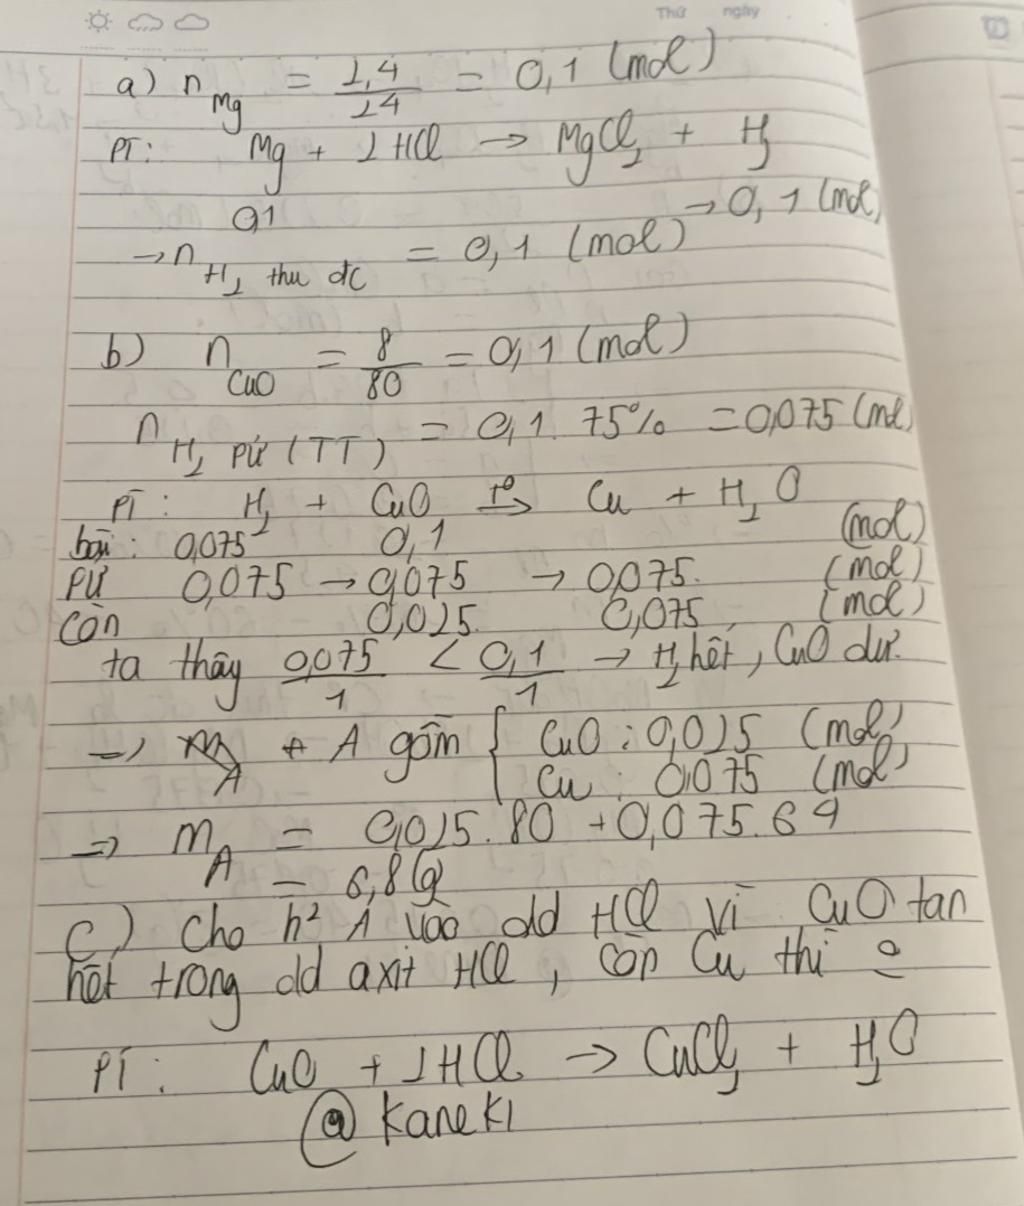 Thứ ngày
a) n Mg = 2,4/24 = 0,1 (mol)
PT: Mg + 2HCl → MgCl2 + H2
0,1 → 0,1 (mol)
→ n H2 thu đc = 0,1 (mol)
b) n CuO = 8/80 = 0,1 (mol)
n H2 PỨ (TT) = 0,1. 75% = 0,075 (mol)
PT: H2 + CuO t°→ Cu + H2O
bài: 0,075 0,1 (mol)
PỨ 0,075 → 0,075 → 0,075. (mol)
còn 0,025. 0,075. (mol)
ta thấy 0,075/1 < 0,1/1 → H2 hết, CuO dư.
=> A gồm { CuO : 0,025 (mol)
Cu : 0,075 (mol)
=> m A = 0,025.80 + 0,075.64
= 6,8 (g)
c) Cho h² A vào dd HCl vì CuO tan
hết trong dd axit HCl, còn Cu thì
PT: CuO + 2HCl → CuCl2 + H2O
@ Kaneki